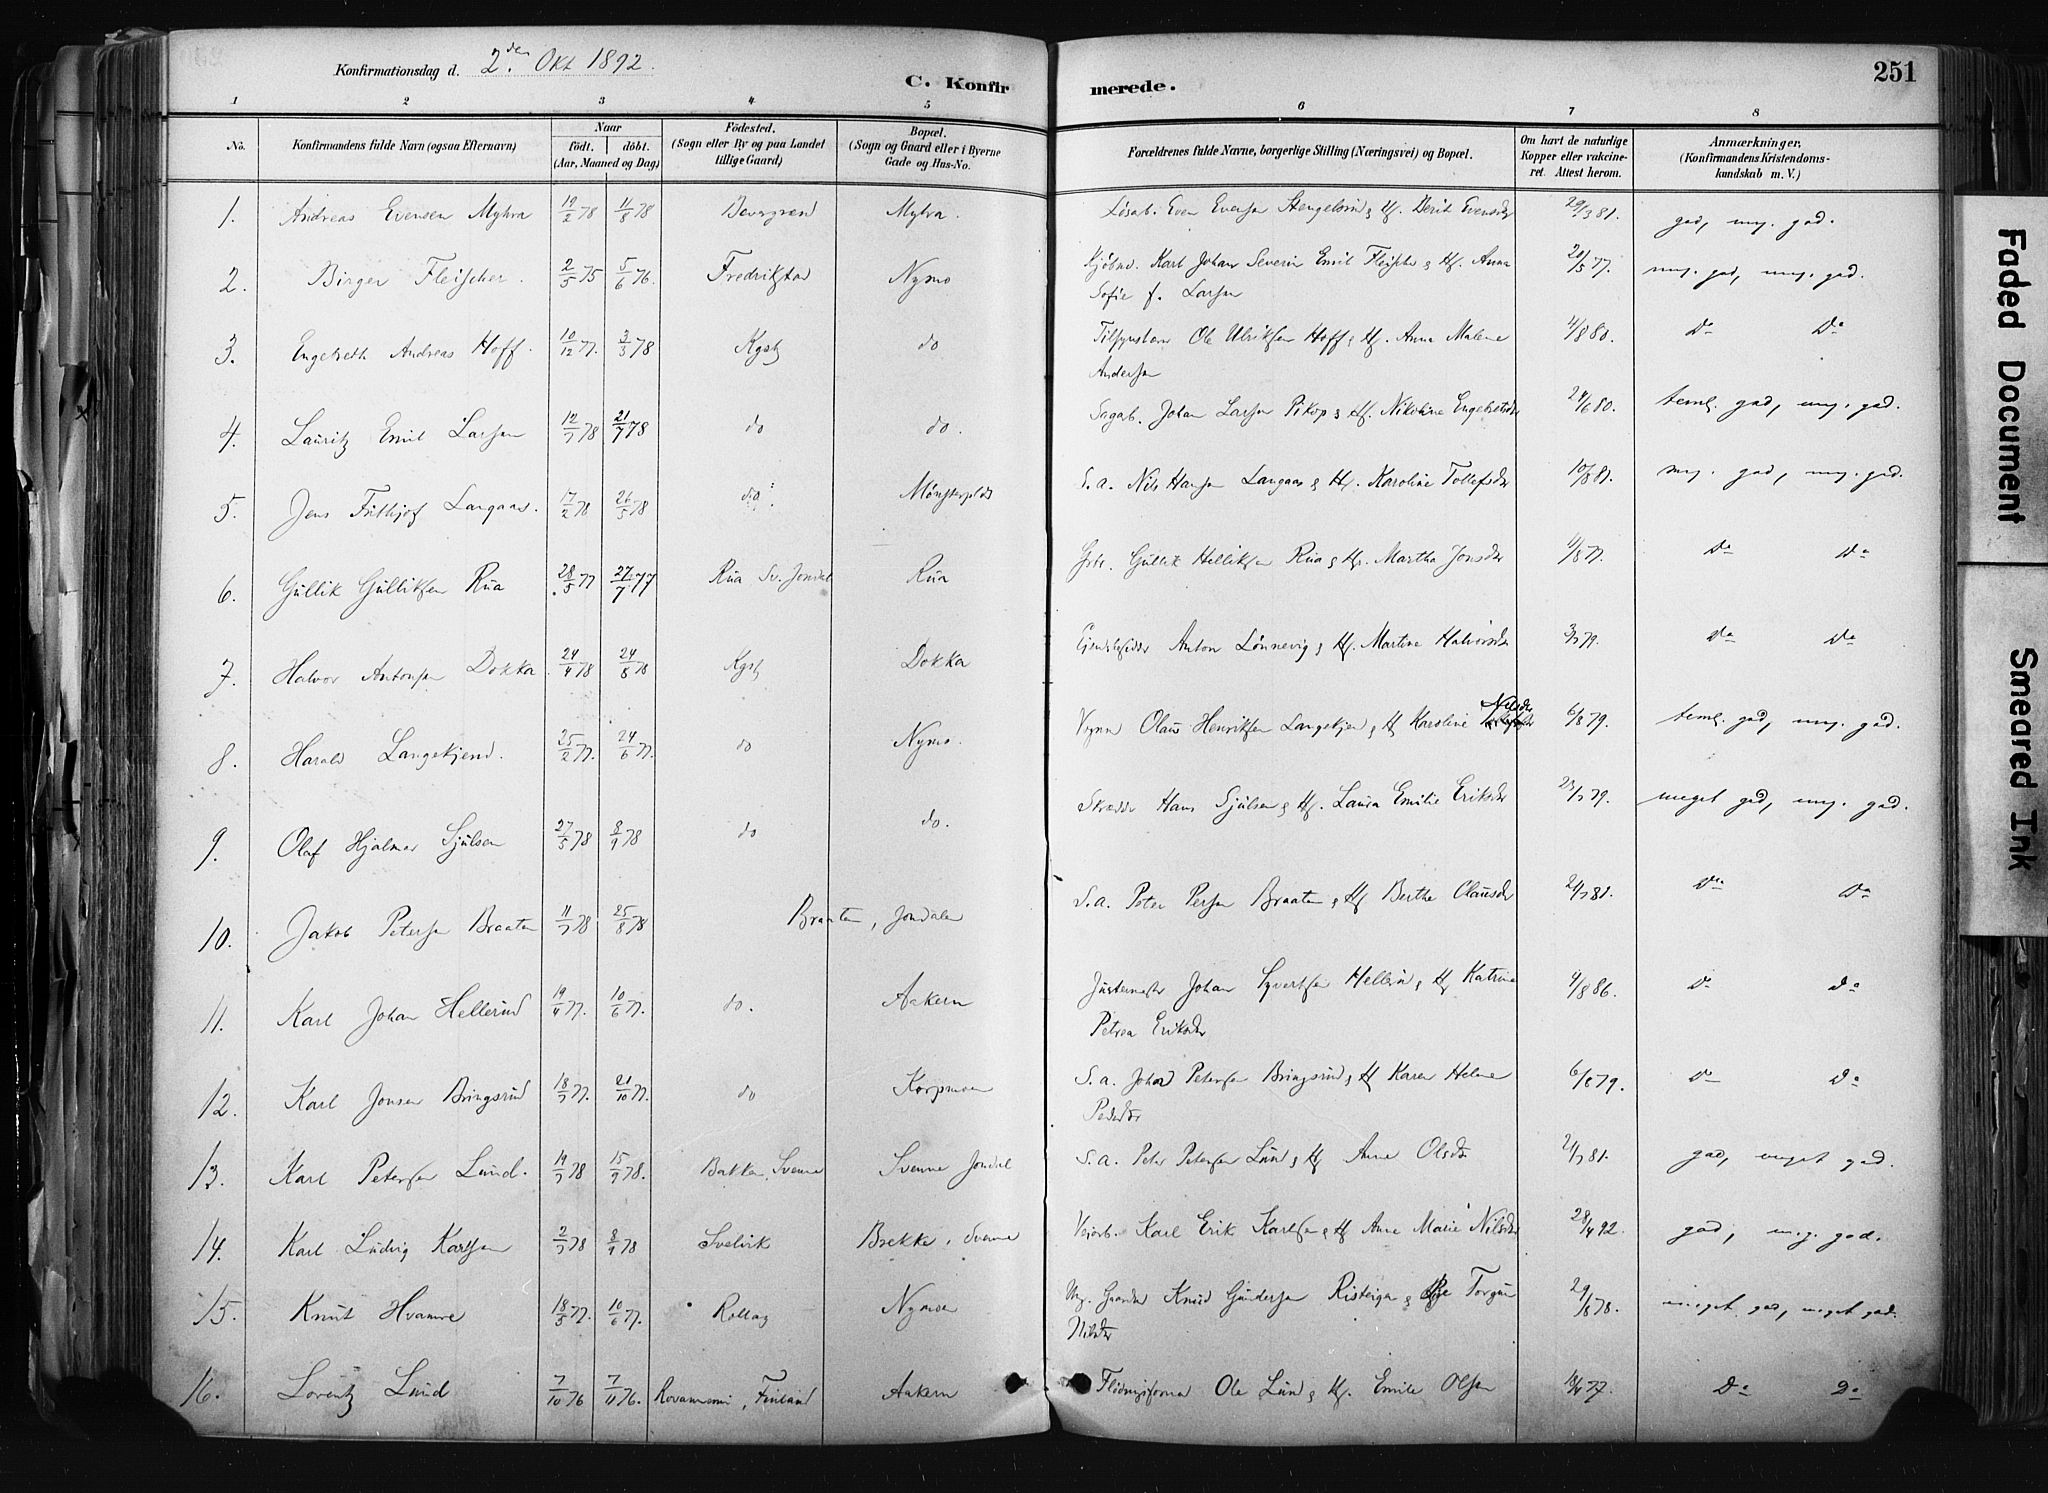 Konfirmationsdag d. 2den Okt 1892.
C. Konfirmerede.
251
1 2 3 4 5 6 7 8
No.
Konfirmandens fulde Navn (ogsaa Efternavn)
Naar
født. døbt.
(Aar, Maaned og Dag)
Fødested.
(Sogn eller By og paa Landet
tillige Gaard)
Bopæl.
(Sogn og Gaard eller i Byerne
Gade og Hus-No.
Forældrenes fulde Navne, borgerlige Stilling (Næringsvei) og Bopæl.
Om havt de naturlige
Kopper eller vakcine-
ret. Attest herom.
Anmærkninger,
(Konfirmandens Kristendoms-
kundskab m. V.)
1. Andreas Evensen Myhra 19/2 78 11/8 78 Myhra. Even Evensen & Hf. Berit Evensdr 29/3 81. god, mg. god.
2. Birger Fleischer. 2/5 75 5/6 76. Fredrikstad Nymo Kjøbmd. Karl Johan Severin Emil Fleischer & Hf. Anna 20/5 77. mg. god, mg. god.
Sofie f. Larsen
3. Engebreth Andreas Hoff. 10/12 77. 3/3 78 Kgsbg do Ole Ulriksen Hoff & Hf. Anna Malene 4/8 80. Do Do
Andersen
4. Lauritz Emil Larsen 12/7 78 21/7 78 do do. Sagarb. Johan Larsen Pikop & Hf. Nikoline Engebretsdr 24/6 80. teml. god, mg. god.
5. Jens Frithjof Langaas. 17/2 78 26/5 78 do. S. a. Nils Hansen Langaas & Hf. Karoline Tollefsdr 10/8 81. mg. god, mg. god.
6. Gullik Gulliksen Rua 28/5 77 27/7 77 Rua Sv. Jondal Rua Gbr. Gullik Helliksen Rua & Hf. Martha Jonsdr 4/8 77. Do Do
7. Halvor Antonsen Dokka. 24/4 78 24/8 78 Kgsbg Dokka Anton Lønnevig & Hf. Martine Halvorsdr 3/7 79. Do Do
8. Harald Langekjend. 25/2 77. 24/6 77. do Nymo. Olaus Henriksen Langekjen & Hf Karoline Nilsdr 6/8 79. teml. god, mg. god.
9. Olaf Hjalmar Sjulsen 27/5 78 8/9 78 do do. Skrædder Hans Sjulsen & Hf. Laura Emilie Eriksdr 23/7 79. meget god, mg. god.
10. Jakob Petersen Braaten 11/7 78 25/8 78 Braaten, Jondalen S. a. Peter Persen Braaten & Hf Berthe Clausdr 21/7 81. Do Do
11. Karl Johan Hellerud 19/4 77. 10/6 77. do. Aakern Justermester Johan Syvertsen & Hf Katrine 4/8 86. Do Do
Petrea Eriksdr
12. Karl Jonsen Bringsrud 18/7 77. 21/10 77. do Korpmoen S. a. Petersen Bringsrud & Hf Karen Helene 6/8 79. Do Do
Pedersdr
13. Karl Petersen Lund. 19/7 78 15/9 78. Bakken, Svenne Svenne Jondal S. a. Peter Petersen Lund & Hf Anne Olsdr 21/7 81. god, meget god.
14. Karl Ludvig Karlsen 2/7 78 8/9 78 Svelvik Brekke, Svenne Veiarb. Karl Erik Karlsen & Hf Anne Marie Nilsdr 28/4 92. god, mg. god.
15. Knut Hvamre 18/5 77. 10/6 77. Rollag Nymoen Knud Gundersen Risteigen & Torgun 29/8 78. meget god, meget god.
Nilsdr
16. Lorentz Lund 7/10 76 7/11 76. Rovaniemi, Finland Aakern Ole Lund & Hf. Emilie Olsen 18/4 77. Do Do
Faded Document
Smeared Ink